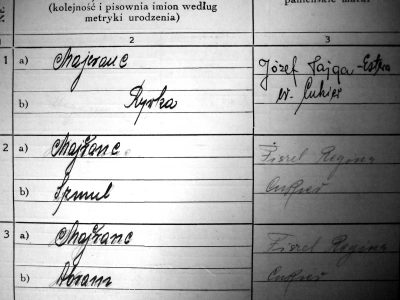 (kolejność i pisownia imion według
metryki urodzenia)
Nr.
panieńskie matki
2
3
1
a) Majeranc
Józef Fajga-Estera
b) Ryvka
w. Cukier
2
a) Majranc
Fiszel Regina
b) Szmul
Cukier
3
a) Majranc
Fiszel Regina
b) Abram
Cukier